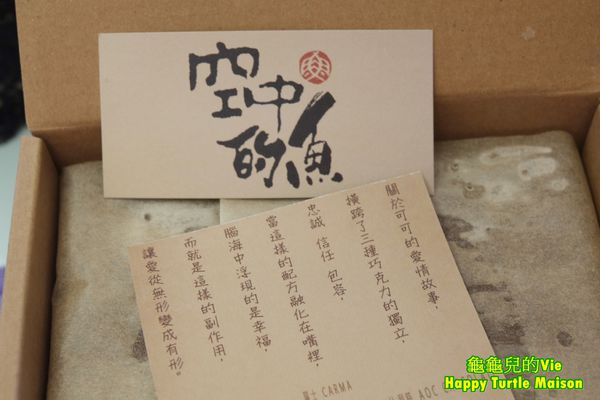 空中
的魚
關於可可的愛情故事,
橫跨了三種巧克力的獨立,
忠誠 信任 包容,
當這樣的配方融化在嘴裡,
腦海中浮現的是幸福,
而就是這樣的副作用,
讓愛從無形變成有形。
瑞士 CARMA
龜龜兒的Vie
Happy Turtle Maison